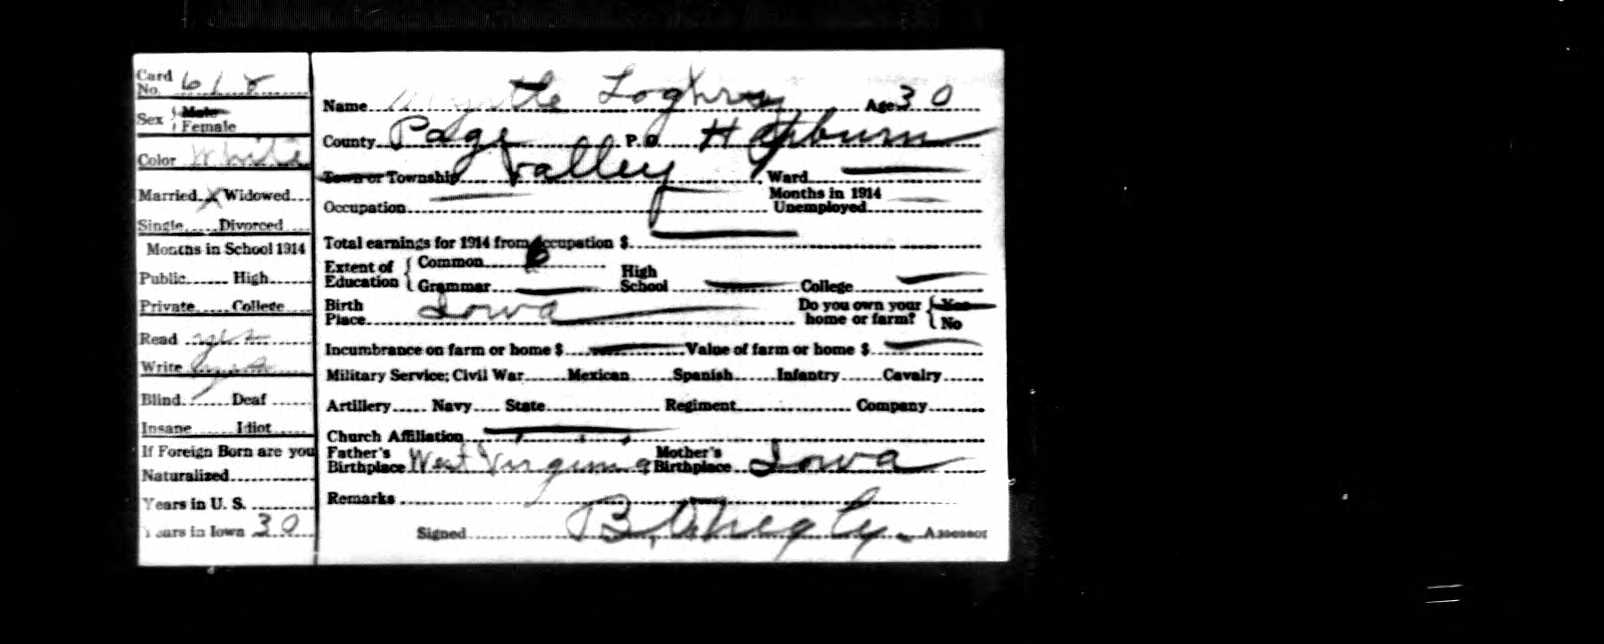 Card No. 618
Sex { Male Female
Color White
Married X Widowed
Single Divorced
Months in School 1914
Public High
Private College
Read yes
Write yes
Blind Deaf
Insane Idiot
If Foreign Born are you
Naturalized
Years in U. S.
Years in Iowa 30
Name Myrtle Age 30
County Page P. O. Hepburn
Town or Township Valley Ward
Occupation Months in 1914 Unemployed
Total earnings for 1914 from occupation $
Extent of Education { Common 6
Grammar High School College
Birth Place Iowa Do you own your home or farm? { Yes No
Incumbrance on farm or home $ Value of farm or home $
Military Service: Civil War Mexican Spanish Infantry Cavalry
Artillery Navy State Regiment Company
Church Affiliation
Father's Birthplace West Virginia Mother's Birthplace Iowa
Remarks
Signed B. Assessor